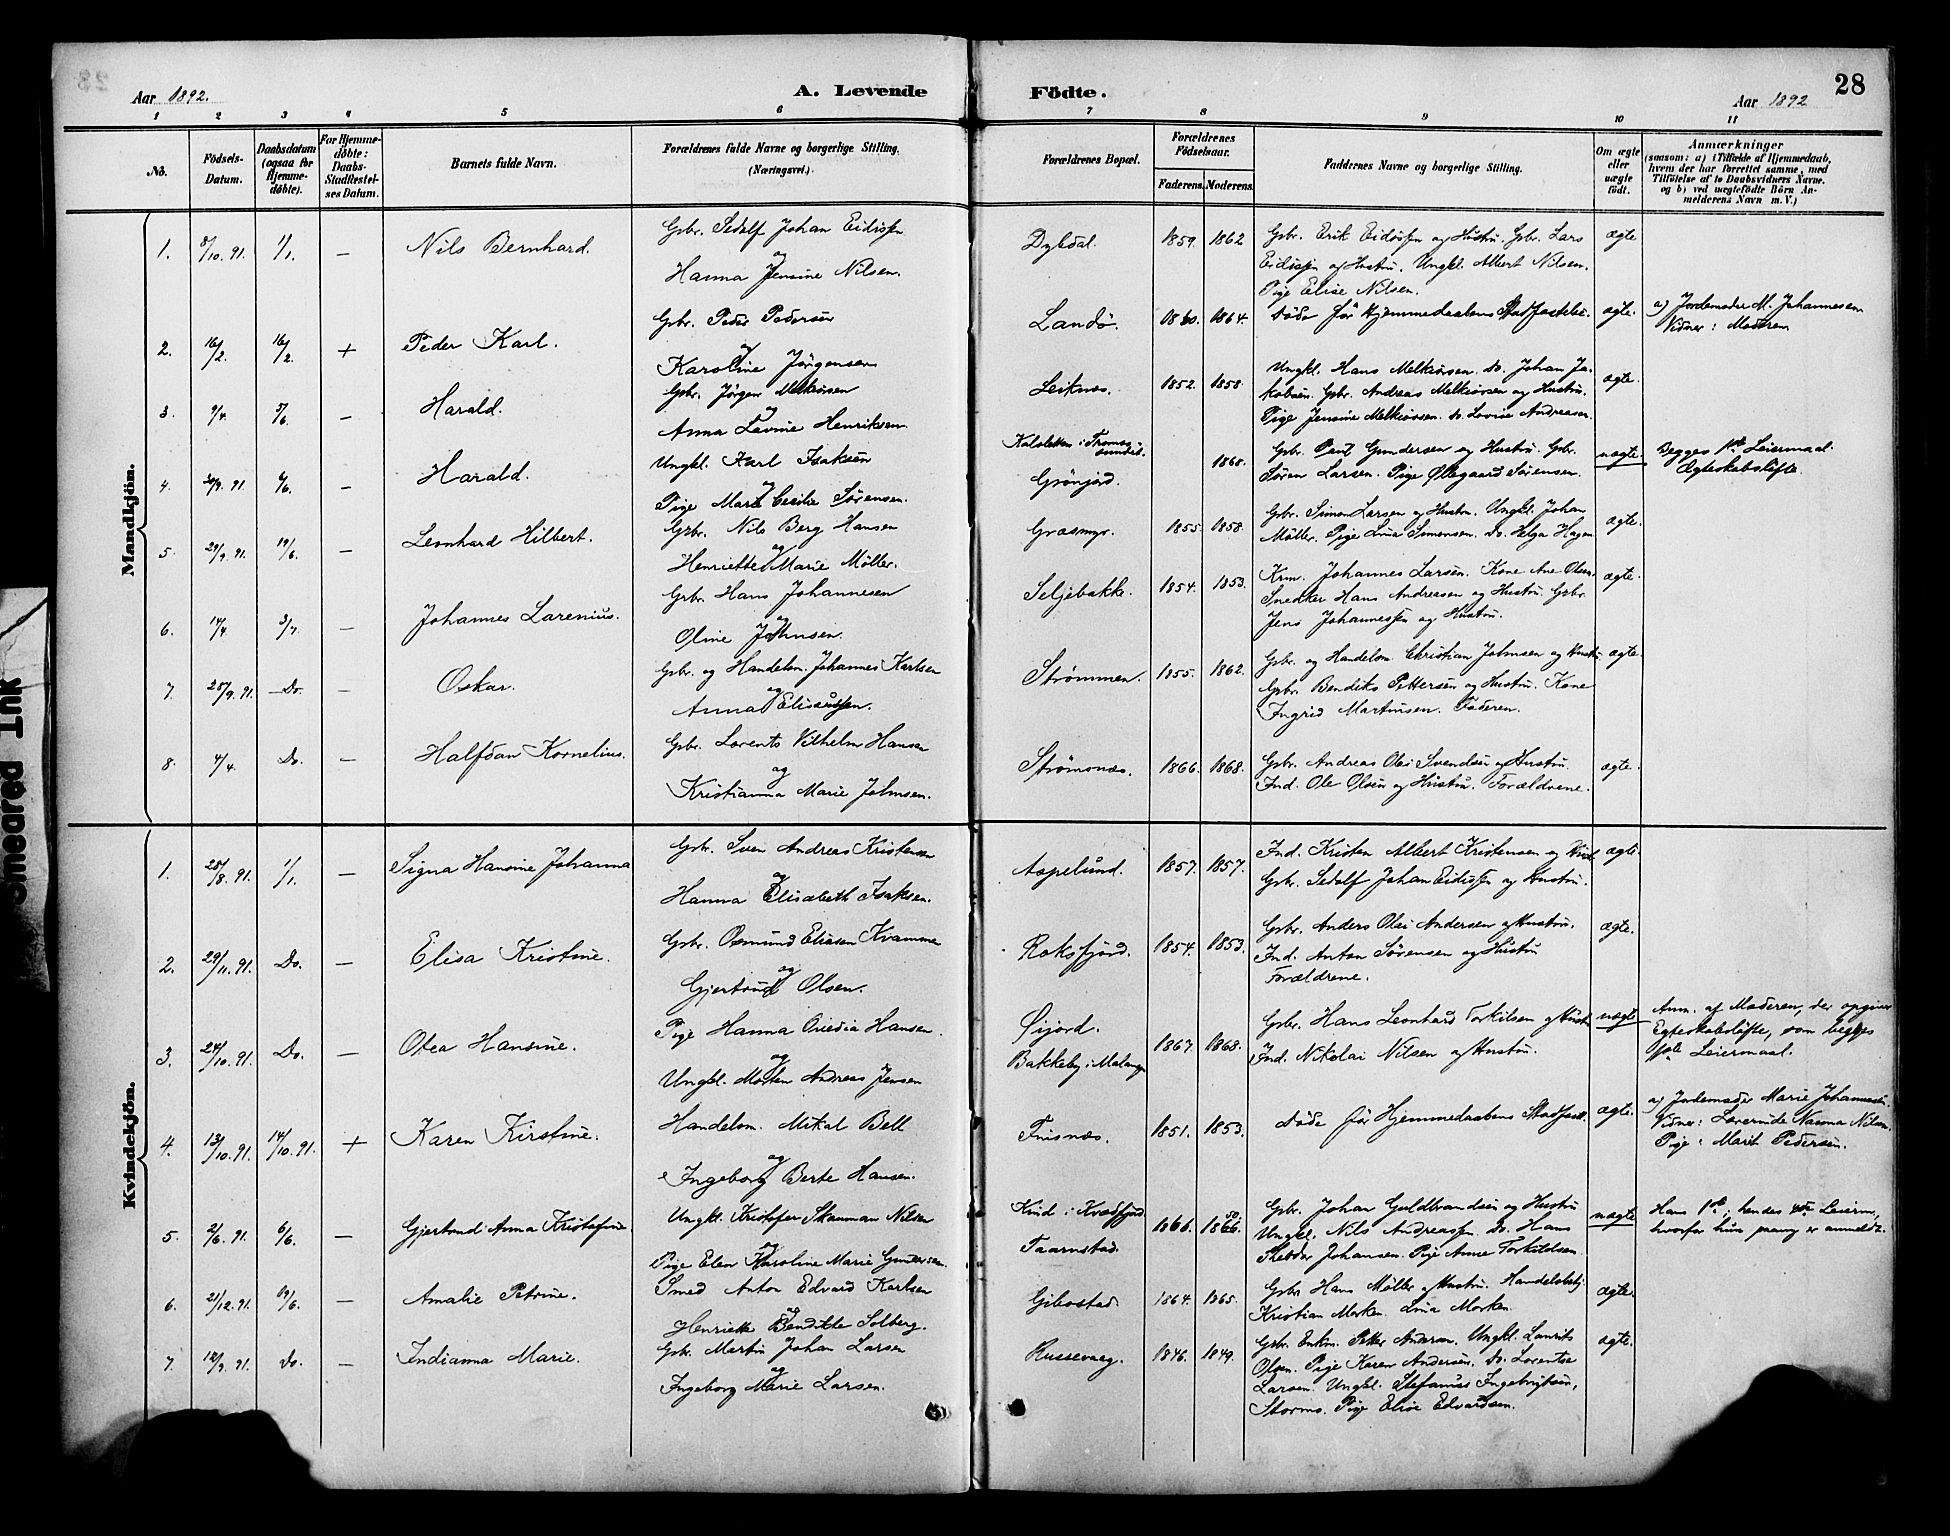 Aar 1892.
A. Levende Födte.
Aar 1892
28
1 2 3 4 5 6 7 8 9 10 11
No.
Födsels-Datum.
Daabsdatum (ogsaa for Hjemme-døbte).
For Hjemme-døbte: Daabs Stadfæstel-ses Datum.
Barnets fulde Navn.
Forældrenes fulde Navne og borgerlige Stilling. (Næringsvei.)
Forældrenes Bopæl.
Forældrenes Födselsaar.
Faderens. Moderens.
Faddernes Navne og borgerlige Stilling.
Om ægte eller uægte födt.
Anmærkninger
(saasom: a) i Tilfælde af Hjemmedaab, hvem der har forrettet samme, med Tilföielse af to Daabsvidners Navne, og b) ved uægtefödte Börn An-melderens Navn m. V.)
Mandkjön.
1. 8/10. 91. 1/1. — Nils Bernhard.
Gbr. Sedolf Johan Eidissen
og
Hanna Jensine Nilsen.
Dybdal. 1859. 1862
Gbr. Erik Eidissen og Hustru. Gbr. Lars
Eidissen og Hustru. Ungkl. Albert Nilsen.
Pige Elise Nilsen.
ægte
2. 16/2. 16/2. + Peder Karl.
Gbr. Peder Pedersen
og
Karoline Jørgensen
Landø. 1860. 1864.
Døde før Hjemmedaabens Stadfæstelse.
ægte.
a) Jordemoder M. Johannesen
Vidner: Moderen
3. 9/4. 5/6. — Harald.
Gbr. Jørgen Melkiorsen
og
Anna Lovine Henriksen
Leiknes. 1852. 1858.
Ungkl. Hans Melkiorsen. Do. Johan Ja-
kobsen. Gbr. Andreas Melkiorsen og Hustru.
Pige Jensine Melkiorsen. Do. Lovise Andreasen.
ægte.
4. 6/6. — Harald.
Ungkl. Karl Isaksen
og
Pige Marie Cecilie Sørensen.
Kalsletten i Tromsø-
sundet.
Grönjord. 1868.
Gbr. Paul Gundersen og Hustru. Gbr.
Søren Larsen. Pige Ollegaard Sørensen.
uægte.
Begges 1ste Leiermaal.
Ægteskabsløfte.
5. 29/9. 91. 19/6. — Leonhard Hilbert.
Gbr. Nils Berg Hansen
og
Henriette Marie Möller.
Grasmyr. 1855. 1858.
Gbr. Simon Larsen og Hustru. Ungkl. Johan
Möller. Pige Lina Simonsen. Do. Helga Hagen
ægte.
6. 14/4. 3/7. — Johannes Larenius.
Gbr. Hans Johannesen
og
Oline Johnsen.
Seljebakke. 1854. 1853.
Krm. Johannes Larsen. Kone Ane Olsen.
Snedker Hans Andreasen og Hustru. Gbr.
Jens Johannessen og Hustru.
ægte.
7. 25/9. 91. — Do. — Oskar.
Gbr. og Handelsm. Johannes Karlsen
og
Anna Elisardsen.
Strømmen. 1855. 1862.
Gbr. og Handelsm. Christian Johnsen og Hustru
Gbr. Bendiks Pettersen og Hustru. Kone
Ingrid Martinsen. Faderen.
ægte.
8. 4/4. Do. — Halfdan Kornelius.
Gbr. Lorents Vilhelm Hansen
og
Kristianna Marie Johnsen.
Strømsnes. 1866. 1868.
Gbr. Andreas Olai Svendsen og Hustru.
Ind. Ole Olsen og Hustru. Forældrene.
ægte.
Kvindekjön.
1. 25/8. 91. 1/1. — Signa Hansine Johanna
Gbr. Sven Andreas Kristensen
og
Hanna Elisabeth Isaksen.
Aspelund. 1857. 1857.
Ind. Kristen Albert Kristensen og Hustr.
Gbr. Sedolf Johan Eidissen og Hustru.
ægte.
2. 29/11. 91. Do. — Elisa Kristine.
Gbr. Osmund Eliasen Kvamme
og
Gjertrud Olsen.
Roksfjord. 1854. 1853.
Gbr. Anders Olai Andersen og Hustru.
Ind. Anton Sørensen og Hustru
Forældrene.
ægte.
3. 24/10. 91. Do. — Olea Hansine.
Pige Hanna Ovedia Hansen.
og
Ungkl. Morten Andreas Jensen
Øijord.
Bakkeby i Malangen 1867. 1868.
Gbr. Hans Leonhard Torkilsen og Hustr.
Ind. Nikolai Nilsen og Hustru.
uægte
Anm. af Moderen, der opgiver
Egteskabsløfte, som begges
1ste Leiermaal.
4. 13/10. 91. 14/10. 91. + Karen Kirstine.
Handelsm. Mikal Bell
og
Ingeborg Berte Hansen.
Finsnes. 1851. 1853.
Døde før Hjemmedaabens Stadfæst.
ægte.
a) Jordemoder Marie Johannesen.
Vidner: Lærerinde Nanna Nilsen.
Pige: Marit Pedersen.
5. 2/6. 91. 6/6. — Gjertrud Anna Kristofine
Ungkl. Kristofer Skauman Nilsen
og
Pige Elen Karoline Marie Gundersen.
Kind i Kvædfjord
Taarnstad. 1866. 1866. 50.
Gbr. Johan Guldbrandsen og Hustru
Ungkl. Nils Andreassen. Do. Hans
Theodor Johansen. Pige Anne Torkildsen.
uægte
Hans 1ste; hendes 4de Leierm,
hvorfor hun paany er anmeldt.
6. 21/12. 91. 19/6. — Amalie Petrine.
Smed Anton Edvard Karlsen
og
Henriette Bendikte Solberg.
Gibostad. 1864. 1865.
Gbr. Hans Möller og Hustru. Handelsbetj.
Kristian Morken. Lina Morken.
ægte.
7. 12/9. 91. Do. — Indianna Marie.
Gbr. Martin Johan Larsen
og
Ingeborg Marie Larsen.
Russevaag. 1846. 1849.
Gbr. Enkm. Peter Andersen. Ungkl. Laurits
Olsen. Pige Karen Andersen. Do. Lorentse
Larsen. Ungkl. Stefanus Ingebrigtsen,
Stormo. Pige Elise Edvardsen.
ægte.
Smeared Ink